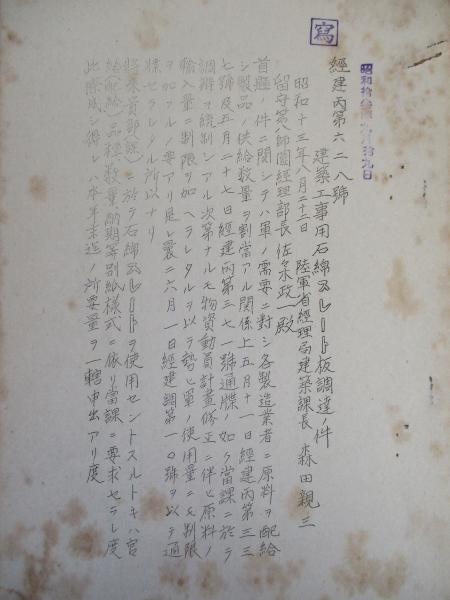 寫
昭和拾參年八月廿九日
經建丙第六二八號
建築工事用石綿スレート板調達ノ件
昭和十三年八月二十二日 陸軍省經理局建築課長 森田親三
留守第八師團經理部長 佐々木政一殿
首題ノ件ニ關シテハ軍ノ需要ニ對シ各製造業者ニ原料ヲ配給
シ製品ノ供給數量ヲ割當アル關係上五月十一日經建丙第三三
七號及五月二十七日經建丙第三七一號通牒ノ如ク當課ニ於テ
調辨ヲ統制シアル次第ナルモ物資動員計畫修正ニ伴ヒ原料ノ
輸入量ニ制限ヲ加ヘラレタルヲ以テ勢ヒ軍ノ使用量ニモ制限
ヲ加フルノ要アリ是レ曩ニ六月一日經建調第一〇號ヲ以テ通
牒セラレタル所以ナリ
將來貴部ニ於テ石綿スレートヲ使用セントスルトキハ官
給配給ノ品種數量納期等別紙樣式ニ依リ當課ニ要求セラレ度
此際成シ得レハ本年末迄ノ所要量ヲ一轄申出アリ度